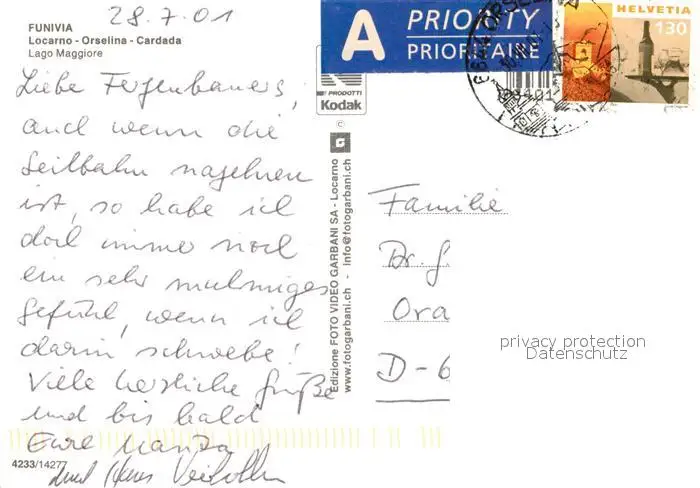 28.7.01
FUNIVIA
Locarno - Orselina - Cardada
Lago Maggiore
Liebe
auch wenn die
Seilbahn nagelneu
ist, so habe ich
doch immer noch
ein sehr mulmiges
Gefühl, wenn ich
darin schwebe!
Viele herzliche Grüße
und bis bald
Eure
und Hans
4233/14277
PRODOTTI
Kodak
©
G
Edizione FOTO VIDEO GARBANI SA - Locarno
www.fotogarbani.ch - info@fotogarbani.ch
A PRIORITY
PRIORITAIRE
ORSELINA
HELVETIA
130
Familie
Dr. G
Ora
D-6
privacy protection
Datenschutz